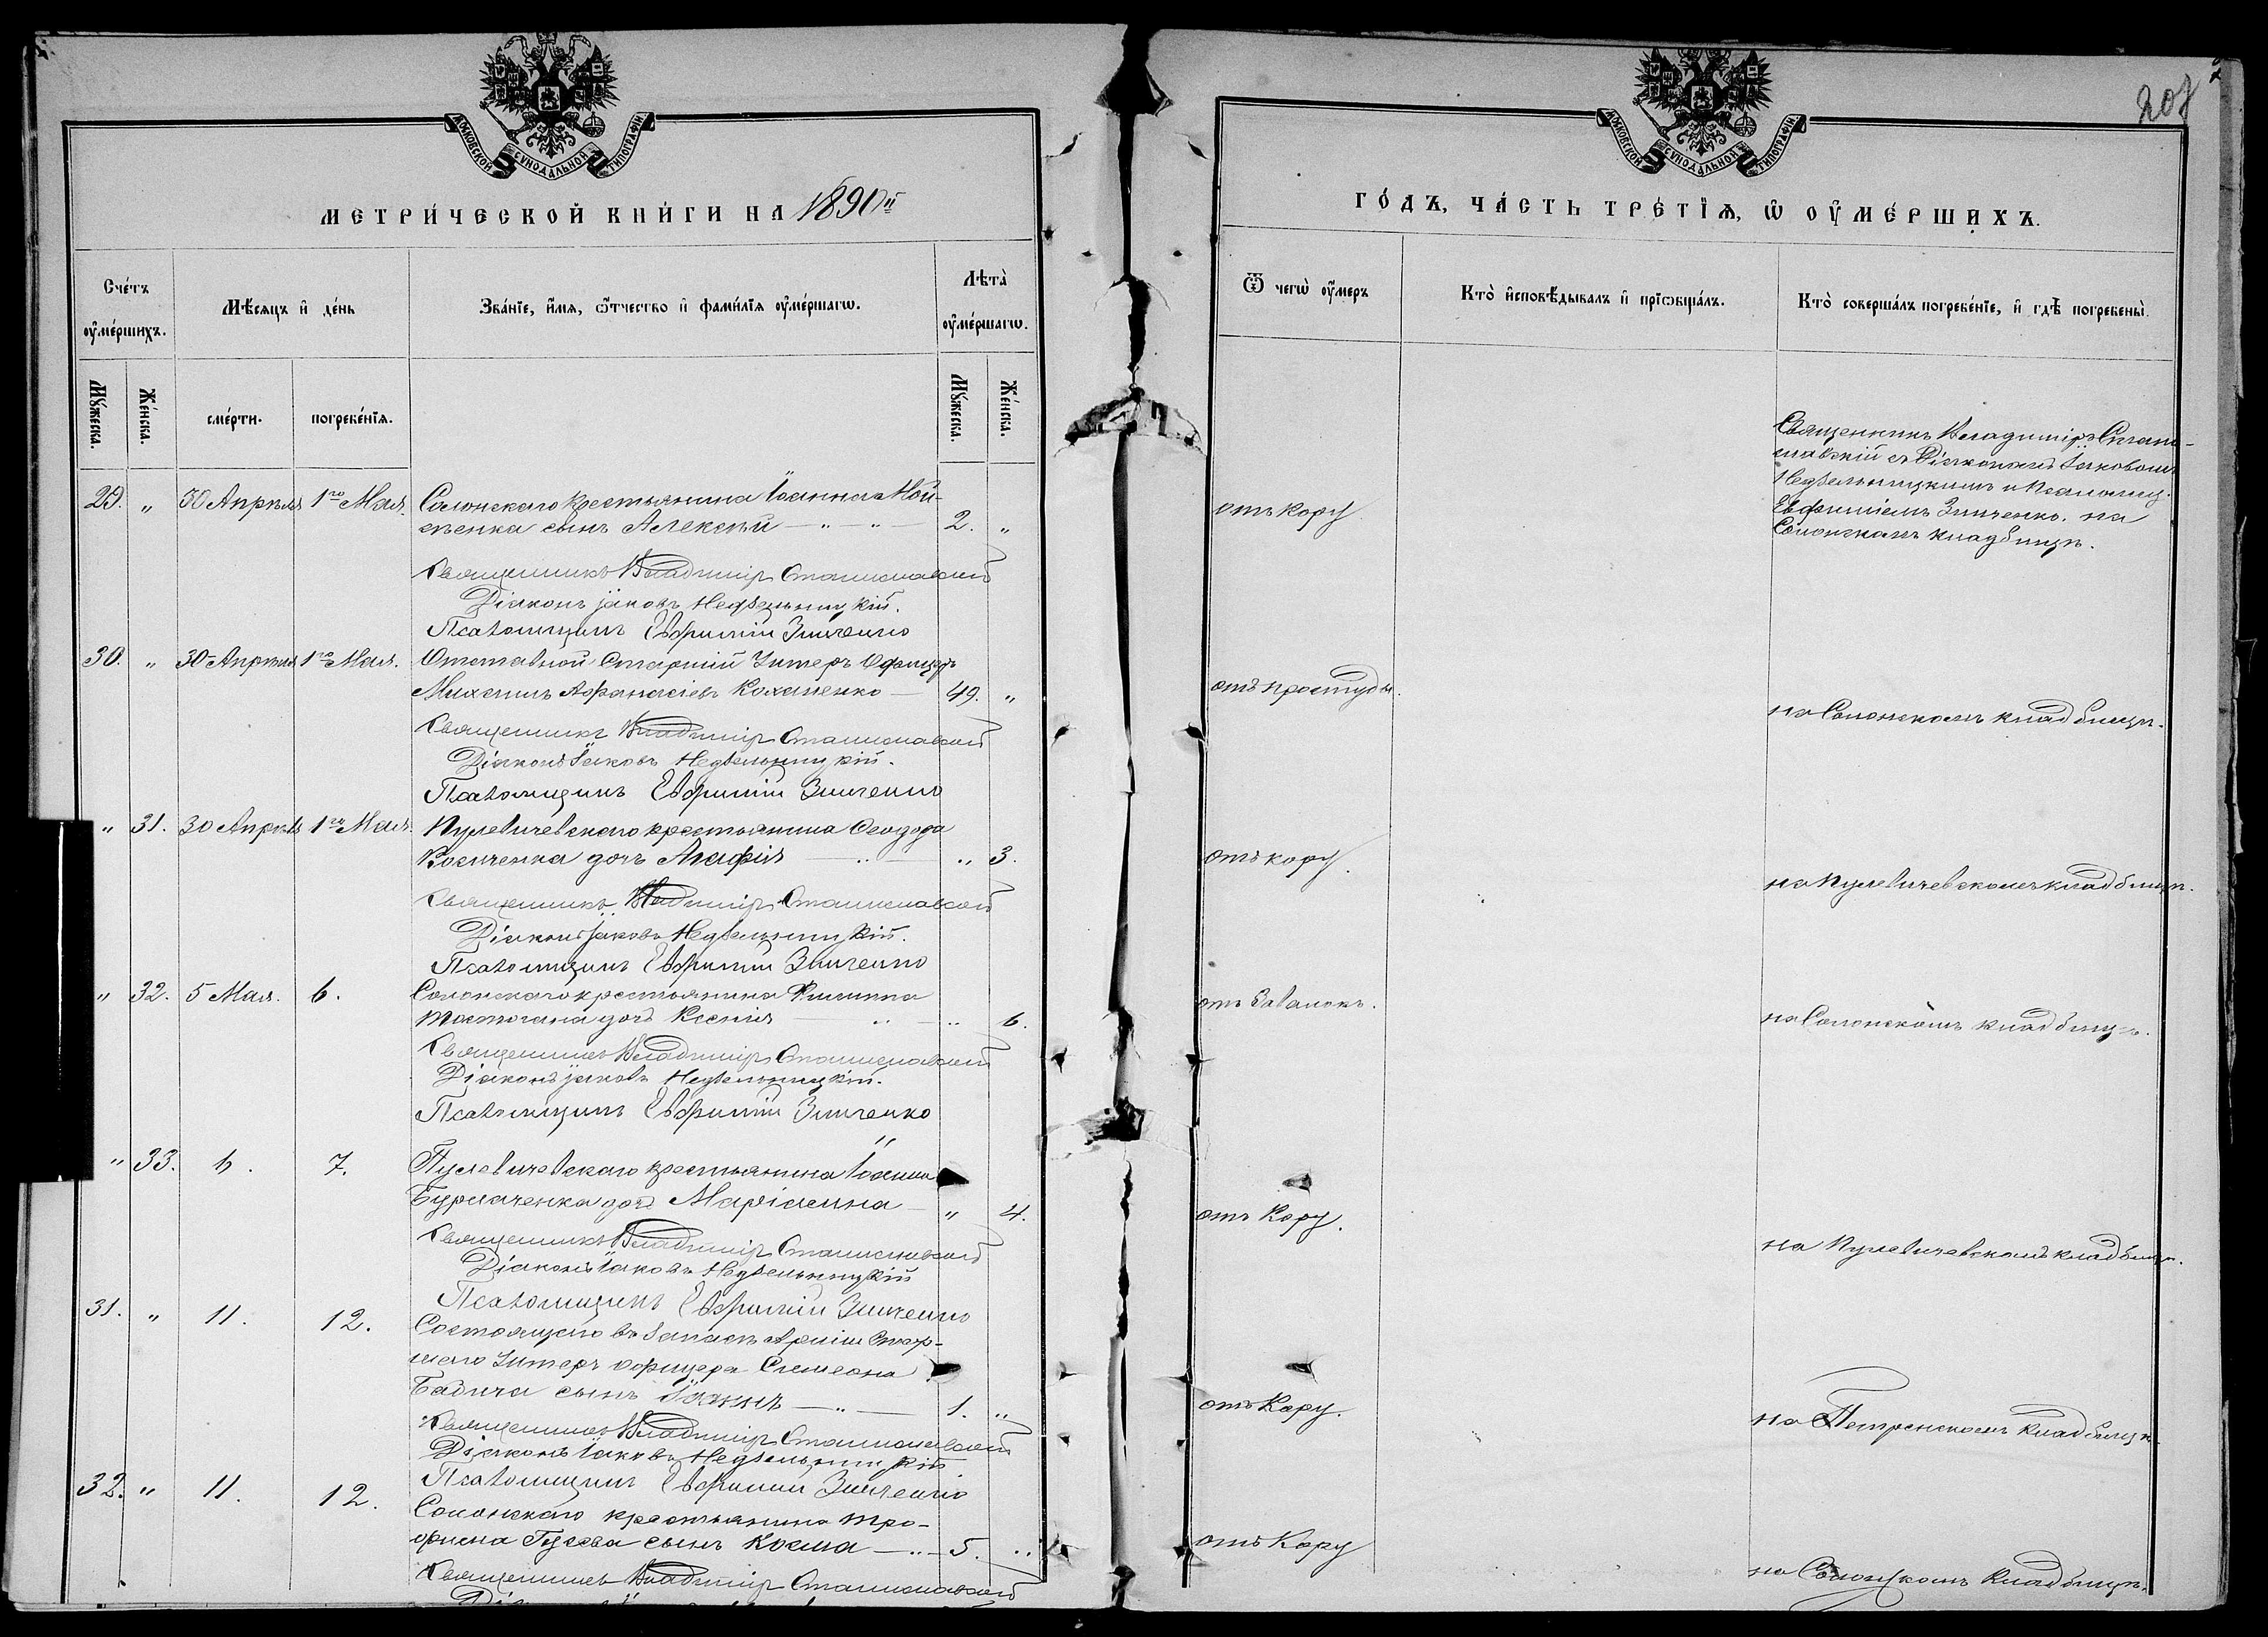 МОСКОВСКОЙ СѴНОДАЛЬНОЙ ТИПОГРАФІИ
МЕТРИ́ЧЕСКОЙ КНИ́ГИ НА 1890й
Сче́тъ оу҆ме́ршихъ.
Мѣ́сяцъ и҆ де́нь
Зва́нїе, и҆́мя, ѻ҆́тчество и҆ фами́лїя оу҆ме́ршагѡ.
Лѣта̀ оу҆ме́ршагѡ.
Мꙋ́жеска.
Же́нска.
сме́рти.
погребе́нїя.
Мꙋ́жеска.
Же́нска.
29. " 30 Апрѣля 1го Мая. Солонскаго крестьянина Іоанна Мой-
сѣенка сынъ Алексѣй — " — " 2. "
Священникъ Владиміръ Станиславскій
Діаконъ Іаковъ Недѣльницкій.
Псаломщикъ Евфимій Зинченко
30. " 30 Апрѣля 1го Мая. Отставной Старшій Унтеръ Офицеръ
Михаилъ Афанасіевъ Коханенко — 49. "
Священникъ Владиміръ Станиславскій
Діаконъ Іаковъ Недѣльницкій.
Псаломщикъ Евфимій Зинченко
" 31. 30 Апрѣля 1го Мая. Пулевичевскаго крестьянина Ѳеодора
дочь Агафія — " — " 3.
Священникъ Владиміръ Станиславскій
Діаконъ Іаковъ Недѣльницкій.
Псаломщикъ Евфимій Зинченко
" 32. 5 Мая. 6. Солонскаго крестьянина Филиппа
дочь Ксенія — " — " 6.
Священникъ Владиміръ Станиславскій
Діаконъ Іаковъ Недѣльницкій.
Псаломщикъ Евфимій Зинченко
" 33. 6. 7. Пулевичевскаго крестьянина Іоанна
Бурлаченка дочь Маріамна — " 4.
Священникъ Владиміръ Станиславскій
Діаконъ Іаковъ Недѣльницкій
Псаломщикъ Евфимій Зинченко
31. " 11. 12. Состоящаго въ запасѣ Арміи Стар-
шаго Унтеръ офицера Симеона
Бабича сынъ Іоаннъ — " — 1. "
Священникъ Владиміръ Станиславскій
Діаконъ Іаковъ Недѣльницкій
Псаломщикъ Евфимій Зинченко
32. " 11. 12. Солонскаго крестьянина Тро-
фима Гусева сынъ Косма — " — 5. "
Священникъ Владиміръ Станиславскій
207
МОСКОВСКОЙ СѴНОДАЛЬНОЙ ТИПОГРАФІИ
ГО́ДЪ, ЧА́СТЬ ТРЕ́ТЇѦ, Ѡ҆ ОУ҆МЕ́РШИХЪ.
Ѿ чегѡ̀ оу҆́меръ
Кто̀ и҆сповѣ́дывалъ и҆ прїѡбща́лъ.
Кто̀ соверша́лъ погребе́нїе, и҆ гдѣ̀ погребены̀.
Священникъ Владиміръ Стани-
славскій съ Діакономъ Іаковомъ
Недѣльницкимъ и Псаломщ.
Евфиміемъ Зинченко. на
Солонскомъ кладбищѣ.
отъ кору
отъ простуды. на Солонскомъ кладбищѣ.
отъ кору. на Пулевичевскомъ кладбищѣ.
отъ Завалокъ. на Солонскомъ кладбищѣ.
отъ Кору. на Пулевичевскомъ кладбищѣ.
отъ Кору. на Петренскомъ Кладбищѣ.
отъ Кору на Солонскомъ Кладбищѣ.